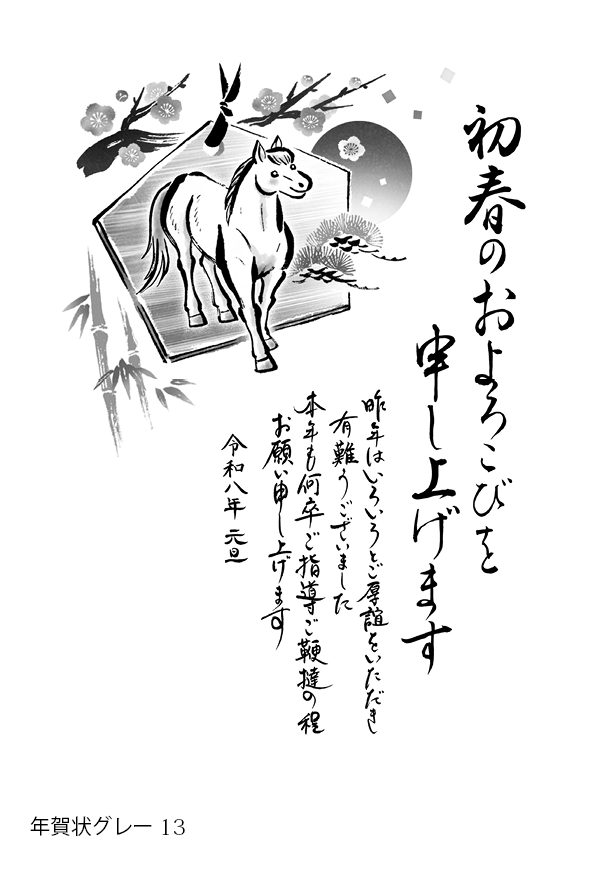 初春のおよろこびを
申し上げます
昨年はいろいろとご厚誼をいただきし
有難うございました
本年も何卒ご指導ご鞭撻の程
お願い申し上げます
令和八年 元旦
年賀状グレー 13